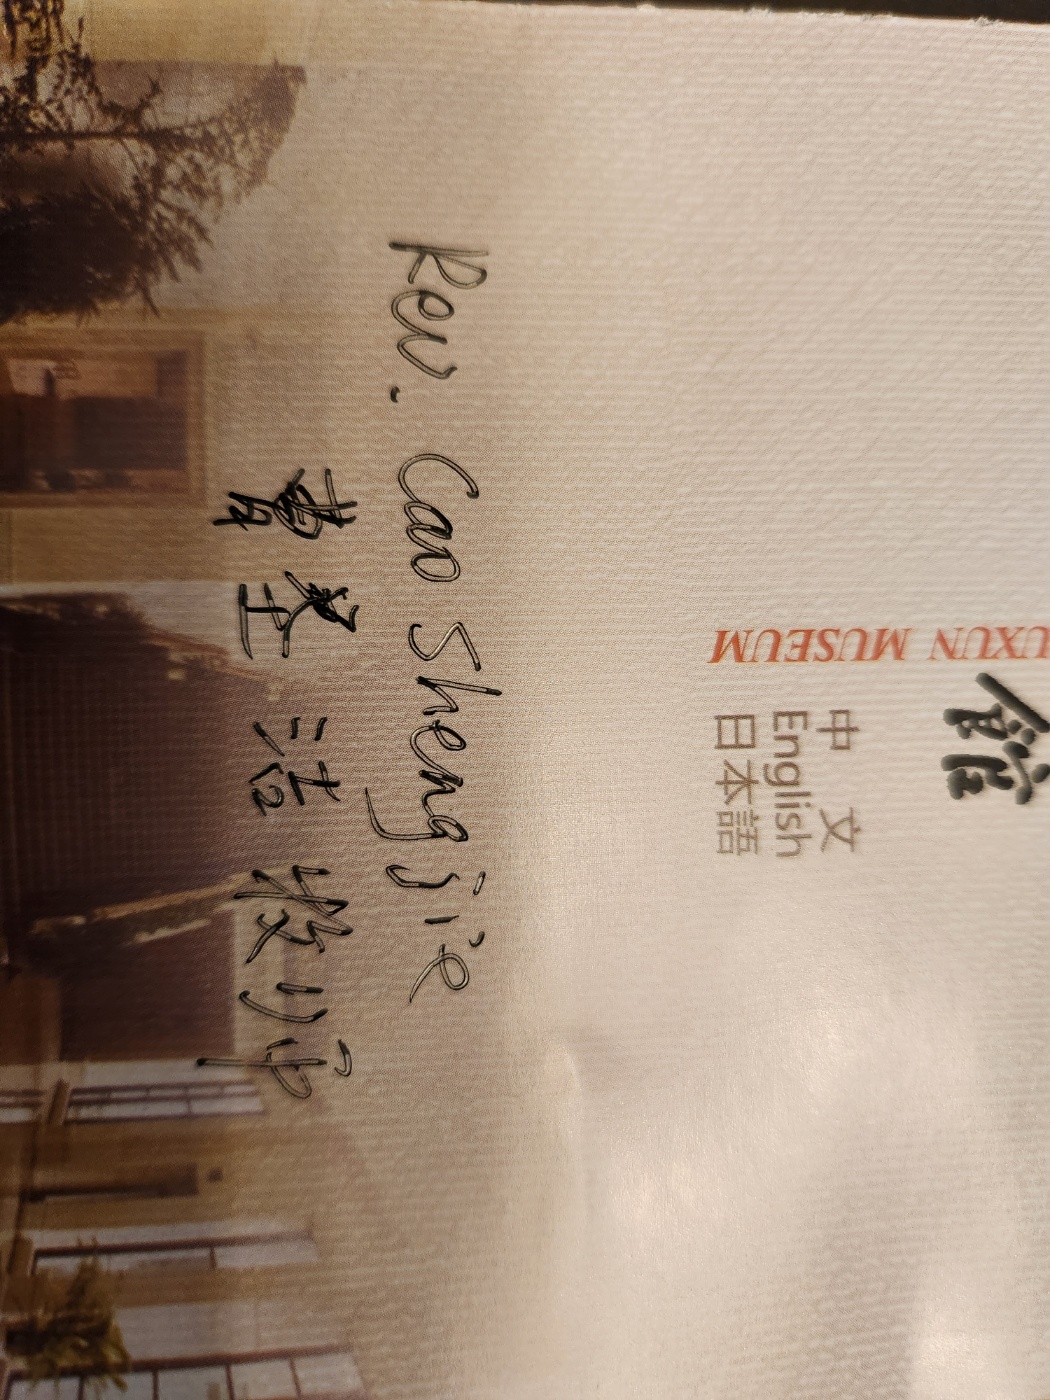 館
UXUN MUSEUM
中 文
English
日本語
Rev. Cao Shengjie
曹圣洁牧师